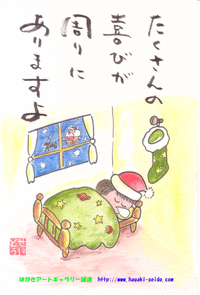 たくさんの
喜びが
周りに
ありますよ
はがきアートギャラリー誠道 http://www.hagaki-seido.com